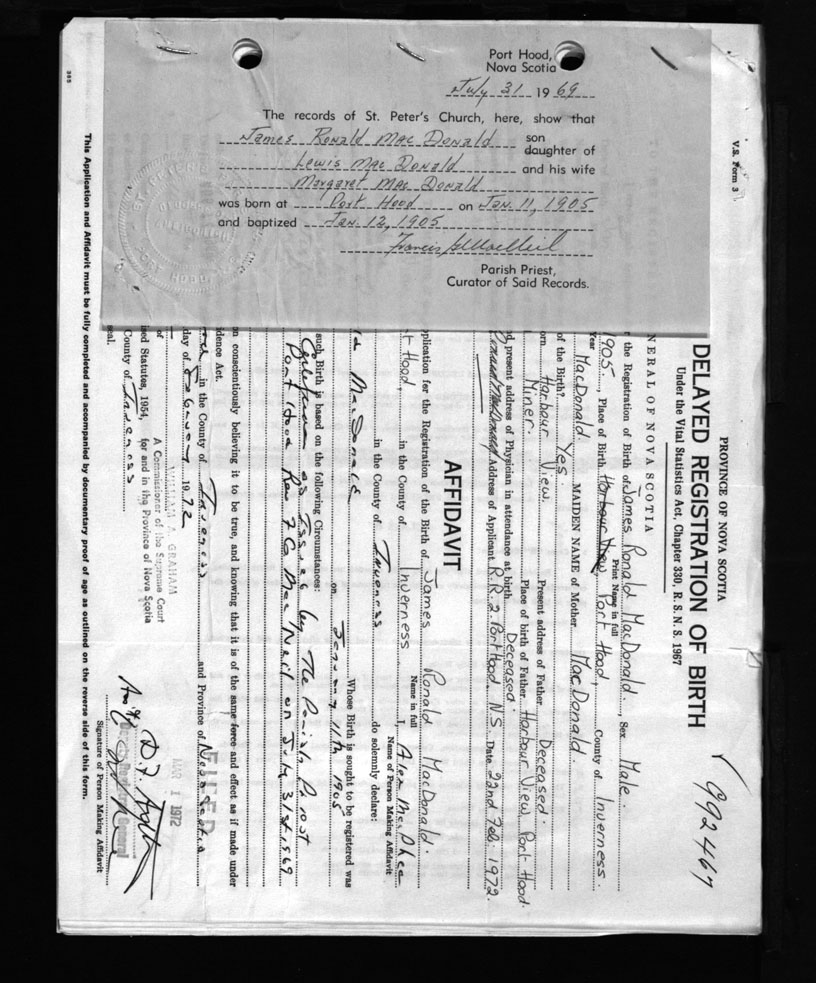 Port Hood,
Nova Scotia
July 31 1969
The records of St. Peter's Church, here, show that
James Ronald MacDonald son
daughter of
Lewis MacDonald and his wife
Margaret MacDonald
was born at Port Hood on Jan. 11, 1905
and baptized Jan. 12, 1905
Parish Priest,
Curator of Said Records.
V.S. Form 3
992467
PROVINCE OF NOVA SCOTIA
DELAYED REGISTRATION OF BIRTH
Under the Vital Statistics Act, Chapter 330, R. S. N. S. 1967
NERAL OF NOVA SCOTIA
the Registration of Birth of James Ronald MacDonald. , Sex Male.
Print Name in full
Year 1905. , Place of Birth Harbour View, Port Hood, County of Inverness.
MacDonald MAIDEN NAME of Mother MacDonald.
of the Birth? Yes.
orn Harbour View. Present address of Father Deceased.
Miner. Place of birth of Father Harbour View, Port Hood.
present address of Physician in attendance at birth Deceased.
Address of Applicant R.R. 2 Port Hood. N.S. Date 22nd Feb. 1972.
AFFIDAVIT
pplication for the Registration of the Birth of James Ronald MacDonald.
Name in full
t Hood, in the County of Inverness I, Alex MacPhee
Name of Person Making Affidavit
in the County of Inverness do solemnly declare:
Whose Birth is sought to be registered was
MacDonald on January 11th 1905
such Birth is based on the following Circumstances:
Certificate as Issued by The Parish Priest
Port Hood Rev MacNeil on July 31st 1969
n conscientiously believing it to be true, and knowing that it is of the same force and effect as if made under
idence Act.
in the County of Inverness and Province of Nova Scotia
day of February 1972
FILED
MAR 1 1972
WILLIAM A. GRAHAM
A Commissioner of the Supreme Court
for and in the Province of Nova Scotia
of
ised Statutes, 1954,
County of Inverness
seal.
Signature of Person Making Affidavit
This Application and Affidavit must be fully completed and accompanied by documentary proof of age as outlined on the reverse side of this form.